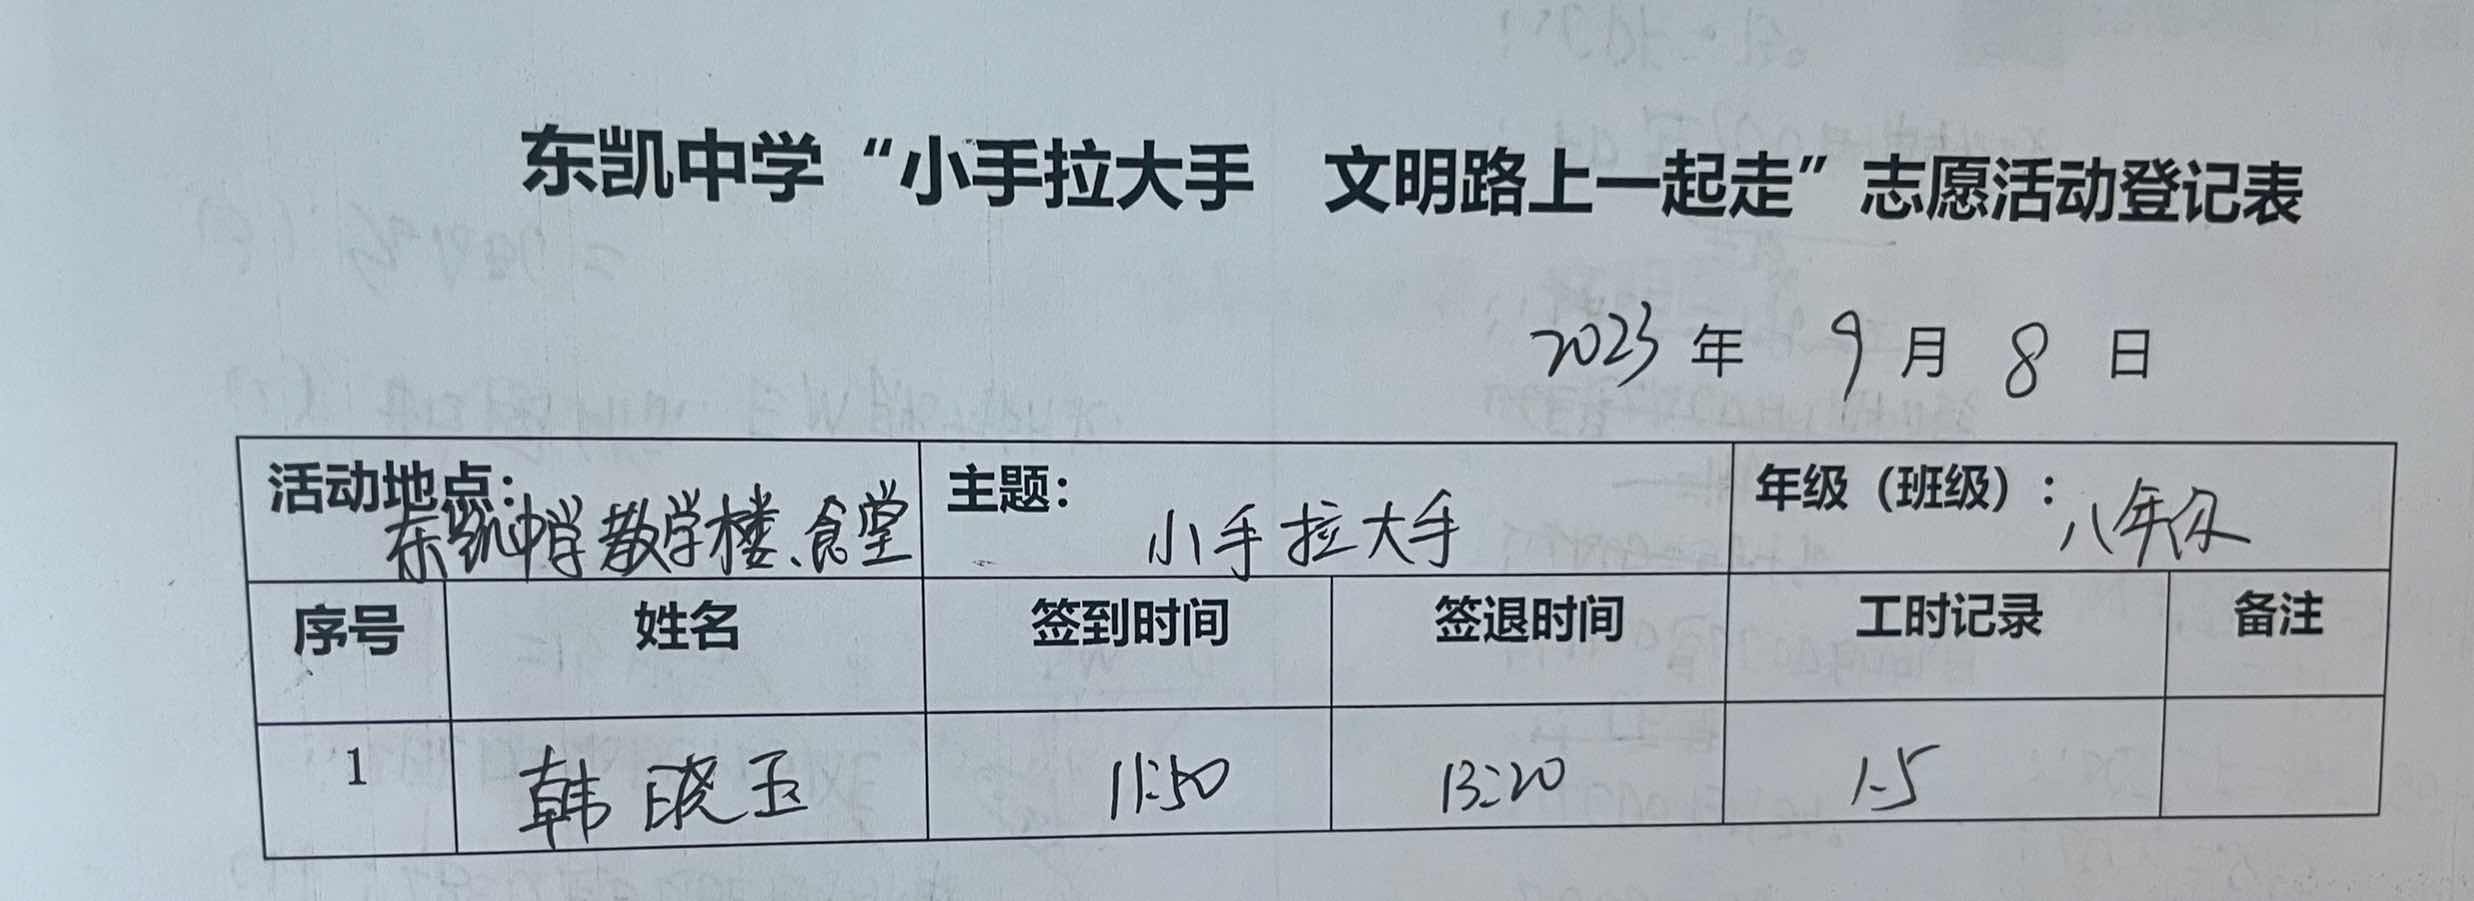 东凯中学“小手拉大手 文明路上一起走”志愿活动登记表
2023年 9月 8日
活动地点：东凯中学教学楼、食堂 主题：小手拉大手 年级（班级）：八年级
序号 姓名 签到时间 签退时间 工时记录 备注
1 韩晓玉 11:50 13:20 1.5